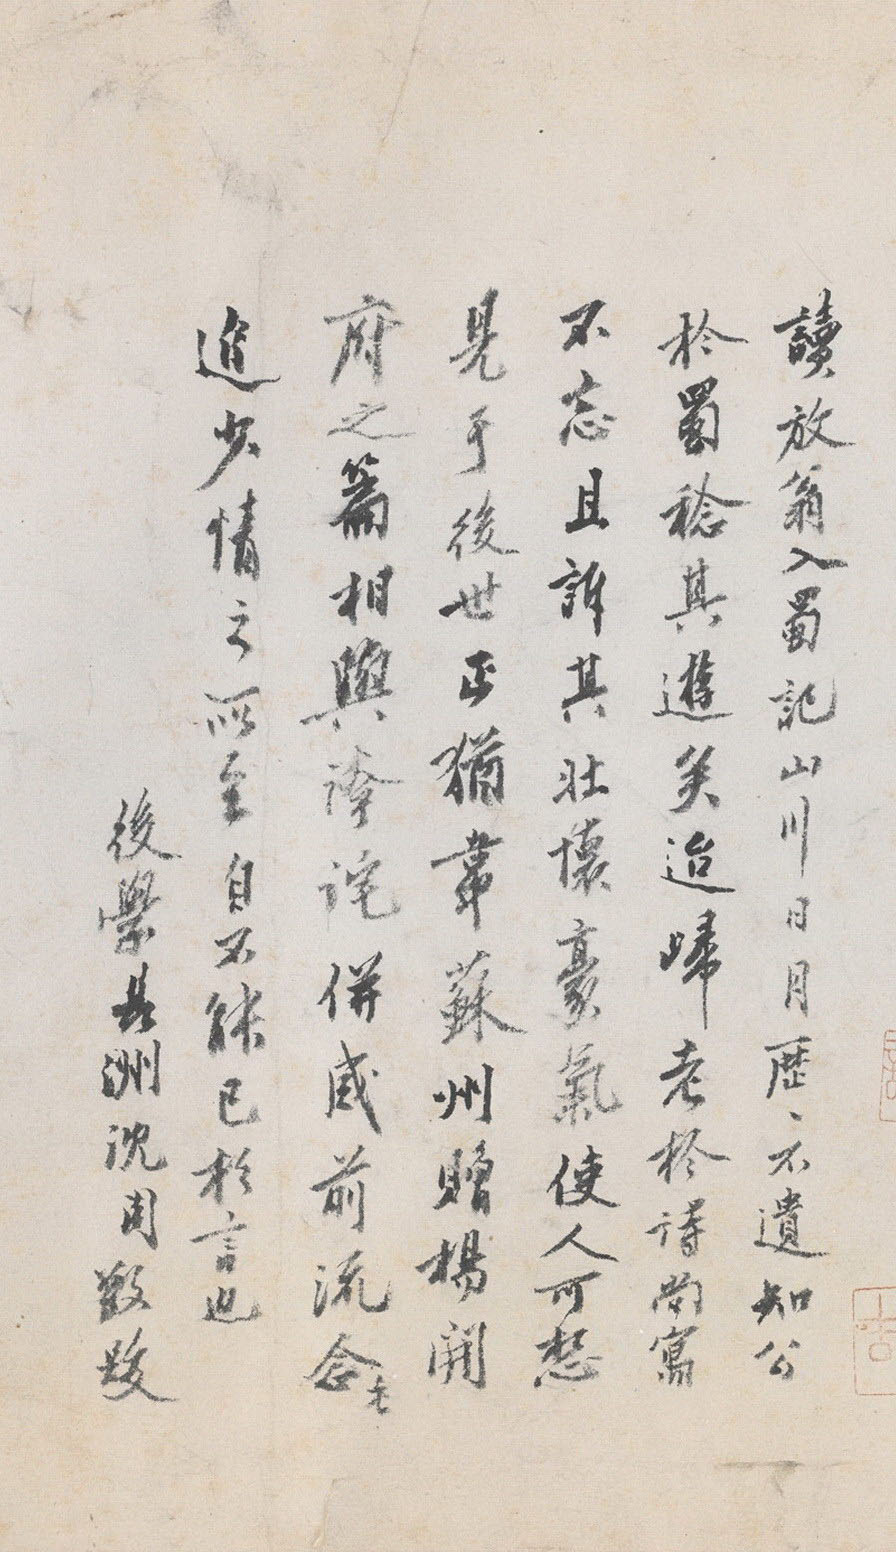 讀放翁入蜀記山川日月歷〻不遺知公
於蜀稔其遊矣迨歸老於詩尚寫
不忘且訴其壯懷豪氣使人可想
見于後世正猶韋蘇州贈楊開
府之篇相與誇詫併感前流念老
追少情之所至自不能已於言也
後學長洲沈周敬跋